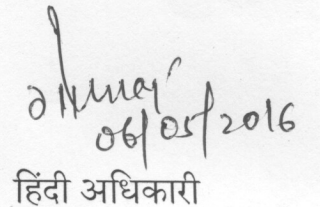 06/05/2016
हिंदी अधिकारी